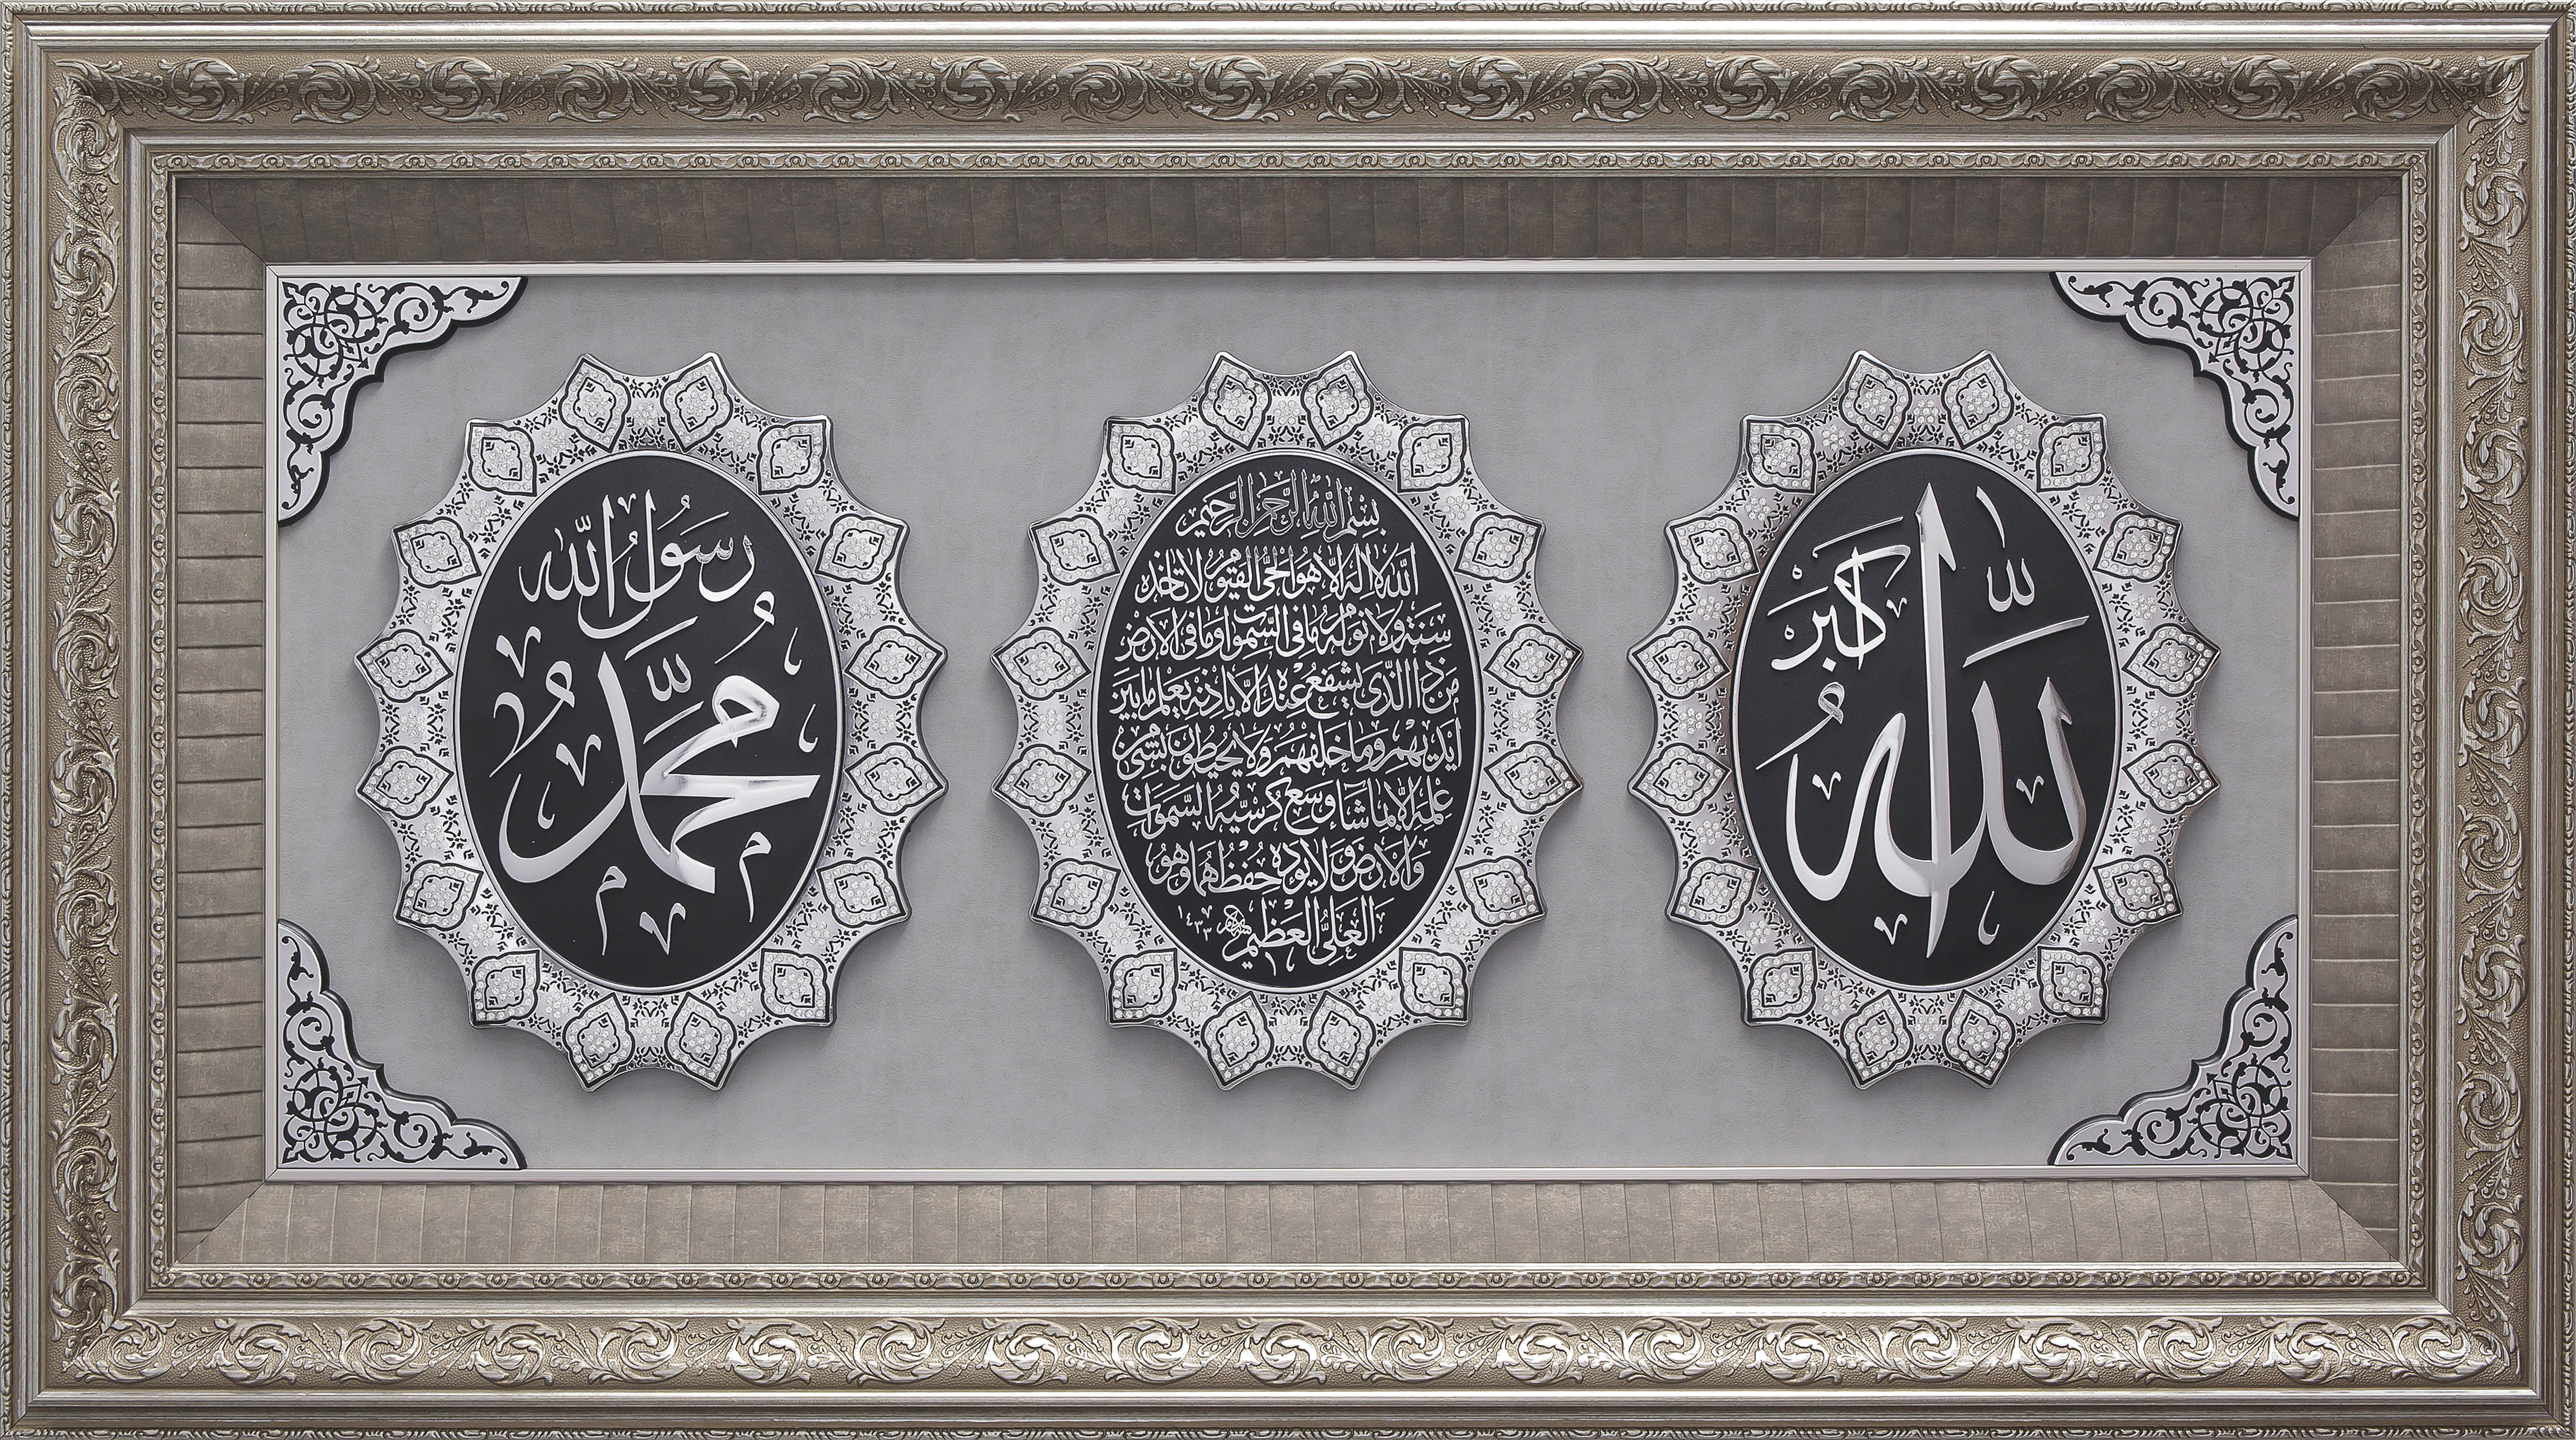 الله
أكبر
بسم الله الرحمن الرحيم
الله لا اله الا هو الحي القيوم لا تأخذه
سنة ولا نوم له ما في السموات وما في الارض
من ذا الذي يشفع عنده الا باذنه يعلم ما بين
ايديهم وما خلفهم ولا يحيطون بشئ من
علمه الا بما شاء وسع كرسيه السموات
والارض ولا يؤده حفظهما وهو
العلي العظيم ١٤٣٣
رسول الله
محمد